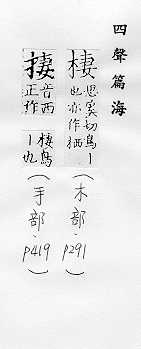 四聲篇海
棲 思奚切鳥丨
也亦作栖
(木部.p291)
捿 音西
正作
棲鳥
丨也
(手部.p419)